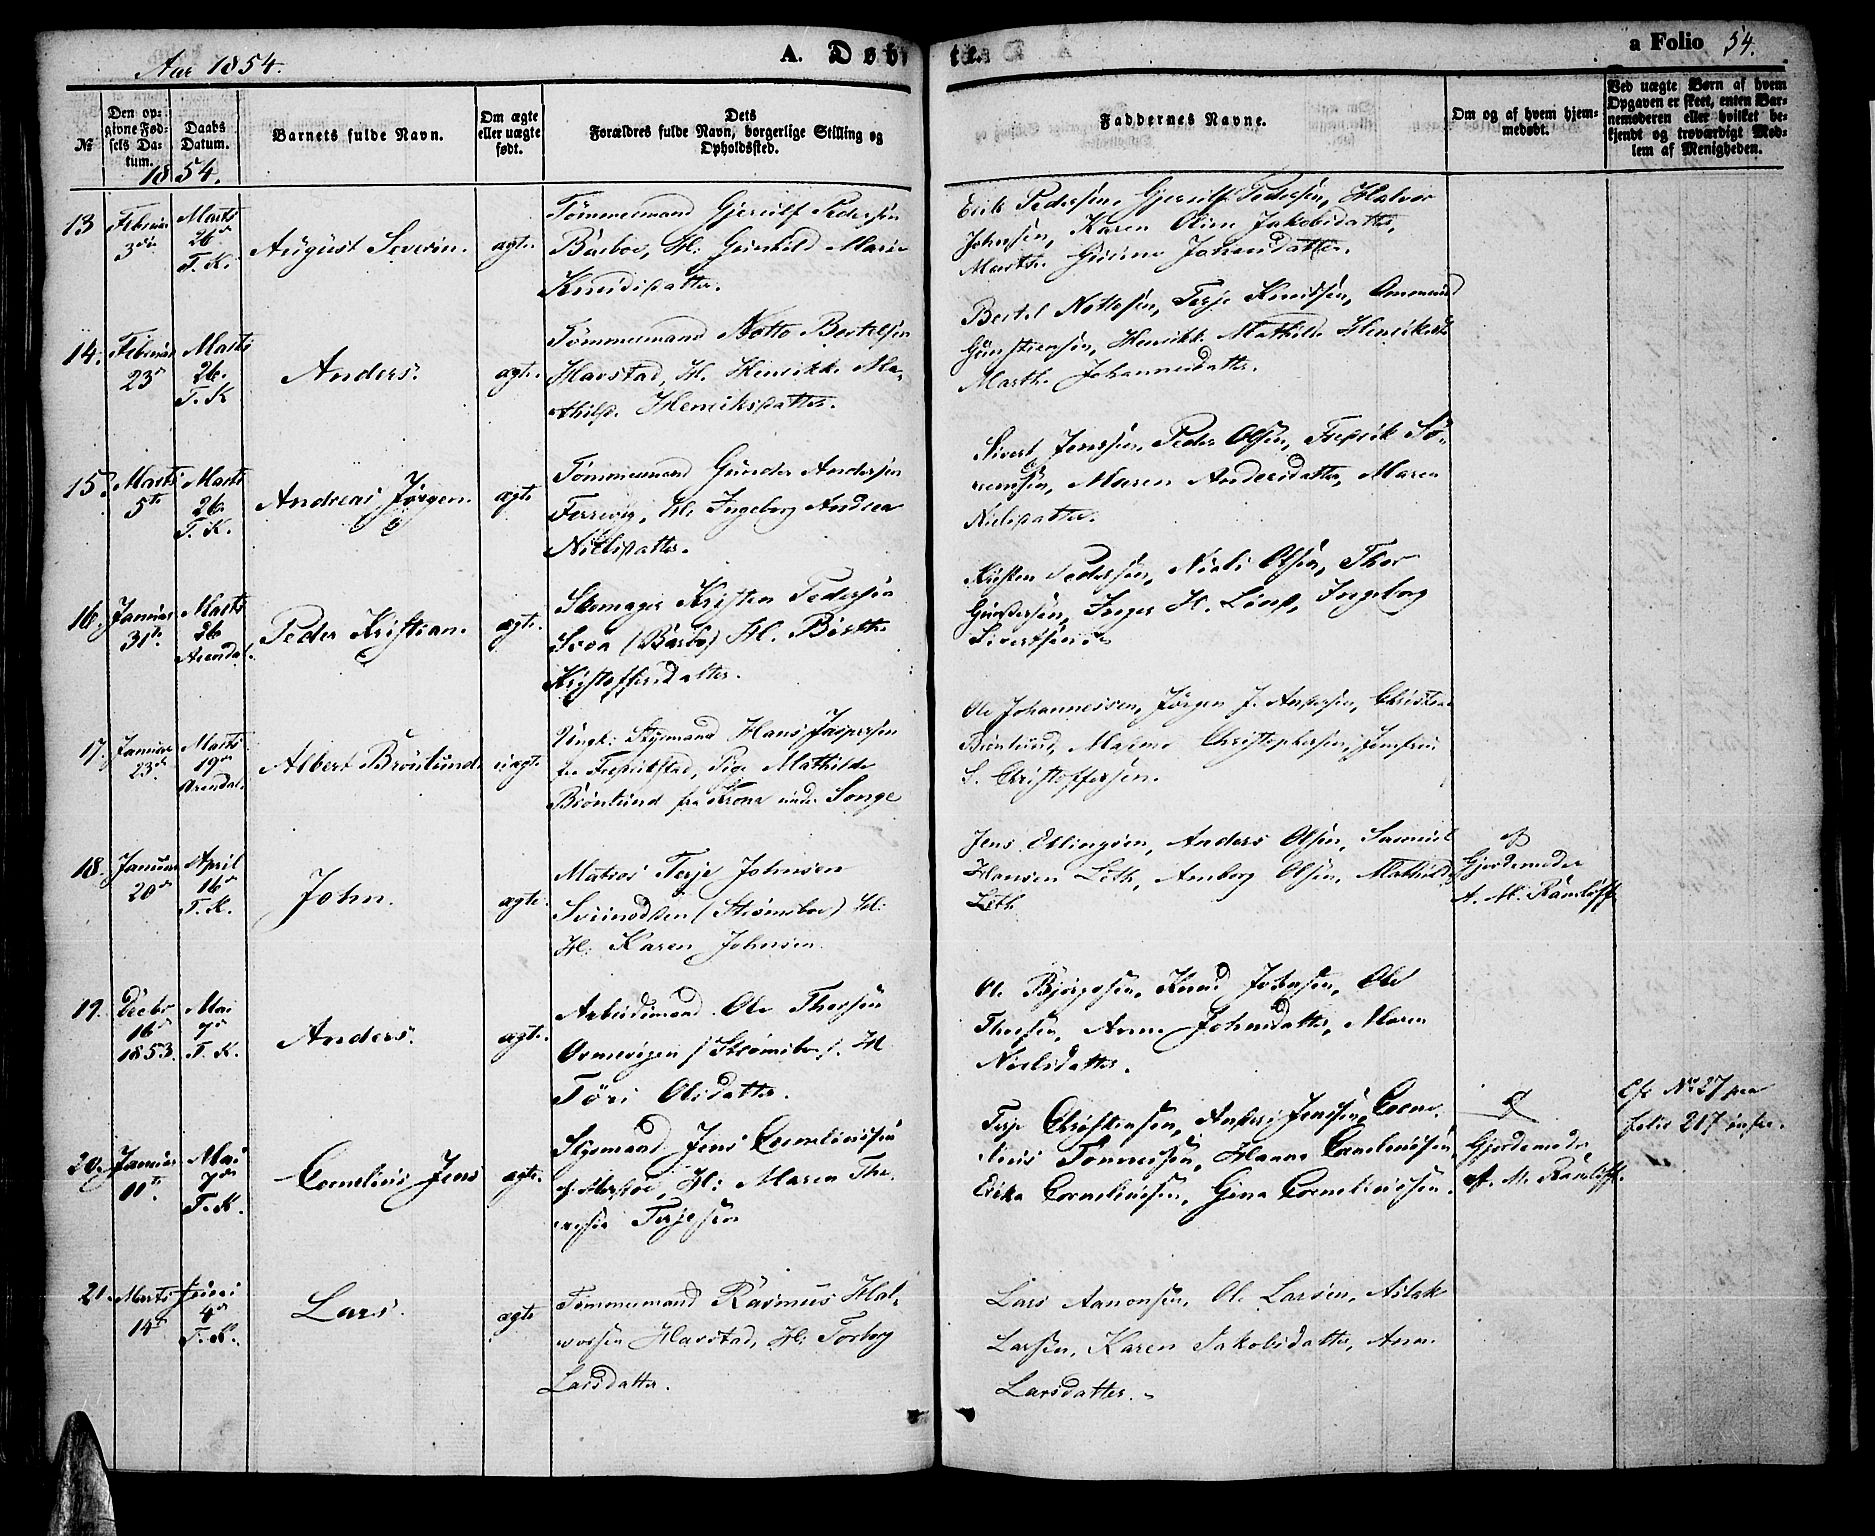 Aar 1854.
A. Døbte.
a Folio 54.
№
Den opgivne Fødsels Datum.
Daabs Datum.
1854.
Barnets fulde Navn.
Om ægte eller uægte født.
Dets
Forældres fulde Navn, borgerlige Stilling og
Opholdssted.
Faddernes Navne.
Om og af hvem hjemmedøbt.
Ved uægte Børn af hvem
Opgaven er skeet, enten Barnemoderen
eller hvilket bekjendt
og troværdigt Medlem
af Menigheden.
13
Februar
3die
Marts
26de
T. K.
August Severin.
ægte.
Tømmermand Gjerulf Pedersen
Barboe, H: Gunhild Marie
Knudsdatter.
Erik Pedersen, Gjerulf Pedersen, Halvor
Johnsen, Karen Oline Jakobsdatter,
Marthe Gurine Johnsdatter.
14.
Februar
23de
Marts
26.
T. K
Anders.
ægte.
Tømmermand Notto Bertelsen
Havstad, H. Henrikke Mathilde
Henriksdatter.
Bertel Nottosen, Terje Knudsen, Ommund
Henrikke Mathilde
Marthe Johannesdatter.
15.
Marts
5te
Marts
26.
T. K.
Andreas Jørgen.
ægte
Tømmermand Gunder Andersen
H: Ingeborg Andrea
Nielsdatter.
Sivert Jensen, Peder Olsen, Fredrik Sørensen,
Maren Andersdatter, Maren
Nielsdatter.
16.
Januar
31te
Marts
26
Arendal.
Peder Kristian.
ægte.
Skomager Kristen Pedersen
(Barbo) H. Birthe
Kristoffersdatter.
Kristen Pedersen, Niels Olsen, Thor
Gundersen, Inger H. Lund, Ingeborg
Sivertsen.
17.
Januar
23de
Marts
19de
Arendal.
Albert Brønlund.
uægte
Ungk: Styrmand Hans Jaspersen
fra Fredrikstad, Pige Mathilde
Brønlund fra under Songe
Ole Johannessen, Jørgen J. Andersen, Christen
Brønlund, Malene Christophersen, Jomfru
S. Christoffersen.
18.
Januar
20de
April
16de
T. K.
John.
ægte.
Matros Terje Johnsen
(Strømsboe) H:
H: Karen Johnsen
Jens Ellingsen, Anders Olsen, Samuel
Hansen Leth, Anborg Olsen, Mathilde
Leth
af
Gjordemoder
A. M. Ramløff
19.
Decbr
16de
1853.
Mai
7de
T. K.
Anders.
ægte.
Arbeidsmand Ole Thorsen
Ormevigen / Strømsbo /. H
Tøri Olsdatter.
Ole Bjørgosen, Knud Johnsen, Ole
Thorsen, Anne Johnsdatter, Maren
Nielsdatter.
20.
Januar
11te
Mai
7de
T. K.
Cornelius Jens
ægte.
Styrmand Jens Corneliussen
H: Maren Theresie
Terjesen
Terje Christensen, Anders Jensen, Cornelius
Tønnessen, Hanne Corneliussen,
Erika Corneliussen, Gina Corneliussen.
af
Gjordemoder
A. M. Ramløff.
Cfr No 27 paa
folio 217 
21.
Marts
14de
Juni
4de
T. K.
Lars.
ægte
Tømmermand Rasmus Halvorsen
Havstad, H: Torborg
Larsdatter.
Lars Aanonsen, Ole Larsen, Aslak
Larsen, Karen Jakobsdatter, Anne
Larsdatter.